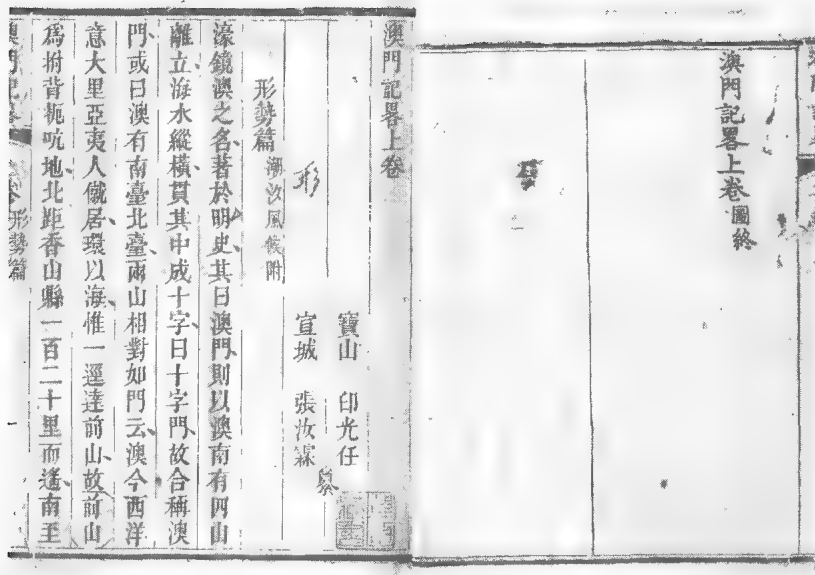 澳門記畧上卷圖終
澳門記畧上卷
寶山 印光任
宣城 張汝霖
纂
形勢篇潮汐風候附
濠鏡澳之名著於明史其曰澳門則以澳南有四山
離立海水縱橫貫其中成十字曰十字門故合稱澳
門或曰澳有南臺北臺兩山相對如門云澳今西洋
意大里亞夷人僦居環以海惟一逕達前山故前山
爲拊背扼吭地北距香山縣一百二十里而遙南至
形勢篇